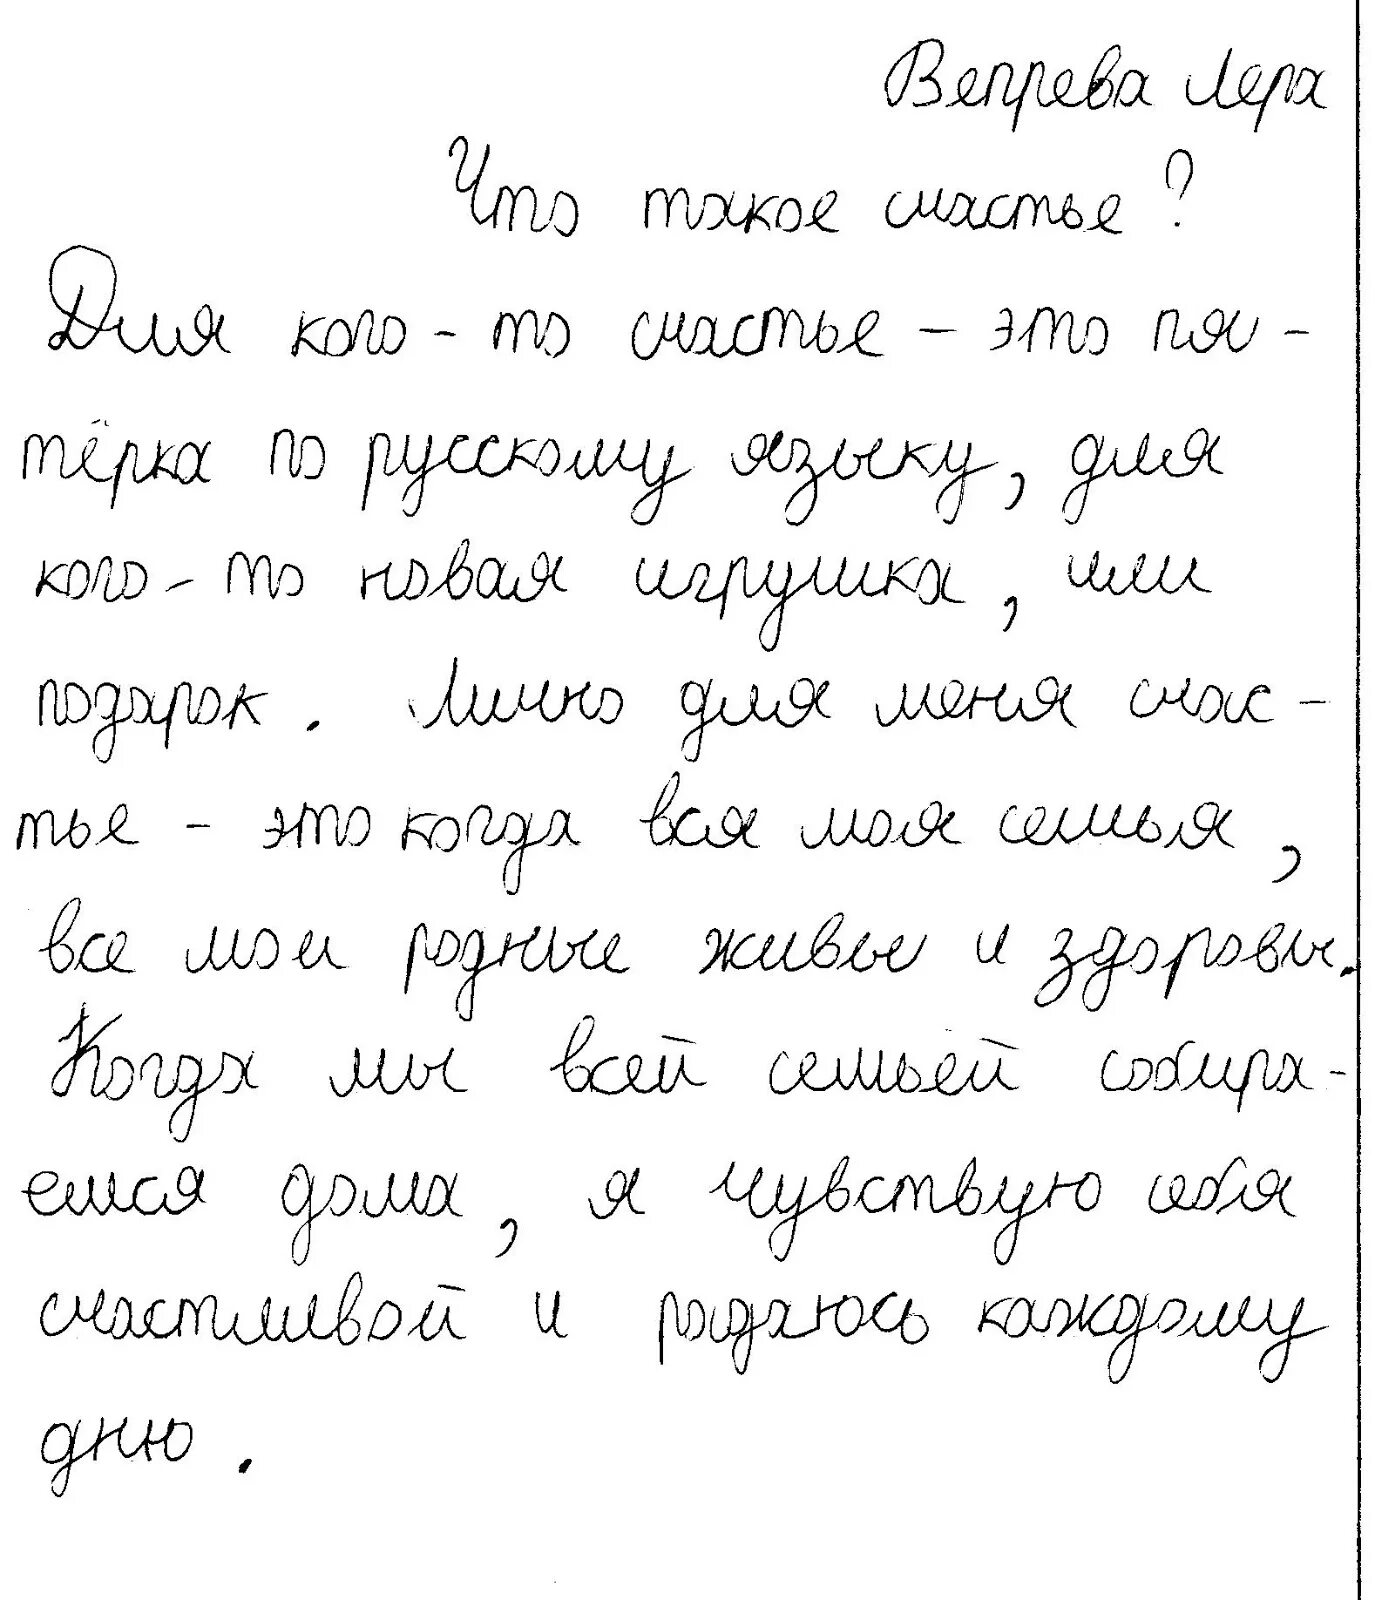 Вепрева Лера
Что такое счастье?
Для кого-то счастье – это пя-
тёрка по русскому языку, для
кого-то новая игрушка, или
подарок. Лично для меня счас-
тье – это когда вся моя семья,
все мои родные живы и здоровы.
Когда мы всей семьёй собира-
емся дома, я чувствую себя
счастливой и радаюсь каждому
дню.